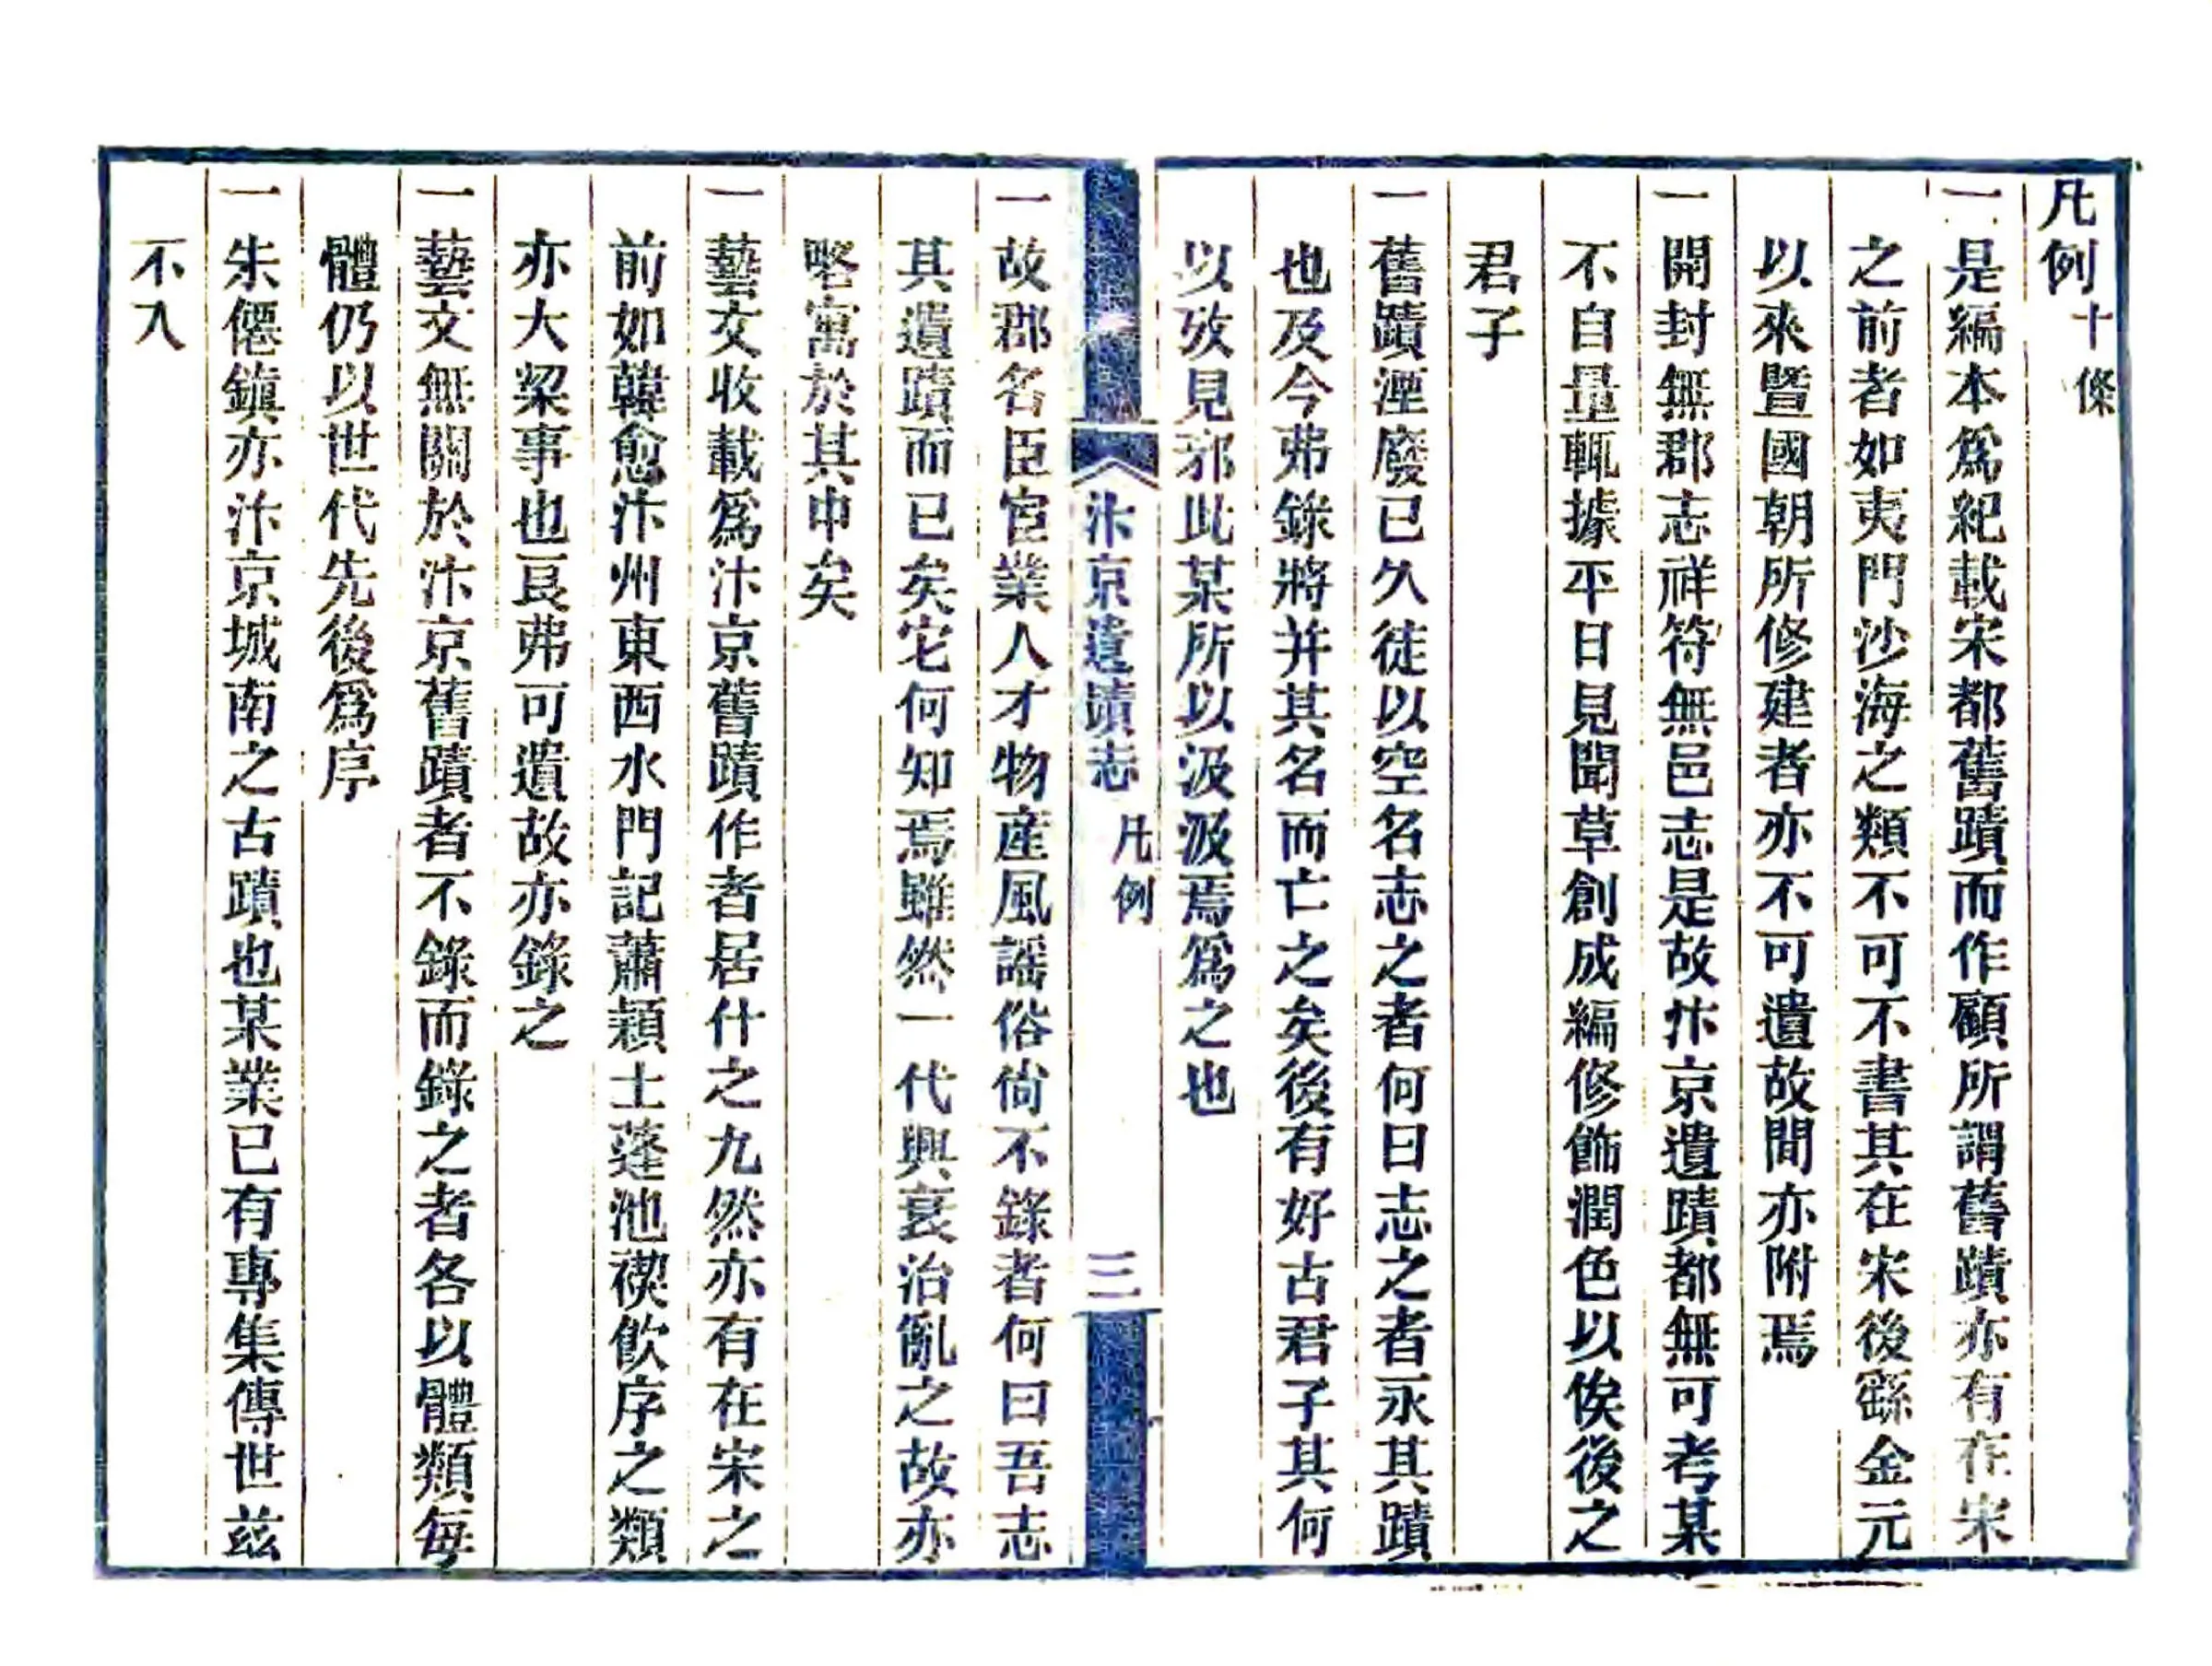 凡例十條
一是編本爲紀載宋都舊蹟而作顧所謂舊蹟亦有在宋
之前者如夷門沙海之類不可不書其在宋後繇金元
以來暨國朝所修建者亦不可遺故間亦附焉
一開封無郡志祥符無邑志是故汴京遺蹟都無可考某
不自量輒據平日見聞草創成編修飾潤色以俟後之
君子
一舊蹟湮廢已久徒以空名志之者何曰志之者永其蹟
也及今弗錄將并其名而亡之矣後有好古君子其何
以攷見邪此某所以汲汲焉爲之也
汴京遺蹟志 凡例 三
一故郡名臣宦業人才物產風謡俗尙不錄者何曰吾志
其遺蹟而已矣它何知焉雖然一代興衰治亂之故亦
略寓於其中矣
一藝文收載爲汴京舊蹟作者居什之九然亦有在宋之
前如韓愈汴州東西水門記蕭穎士蓬池禊飮序之類
亦大梁事也豈弗可遺故亦錄之
一藝文無關於汴京舊蹟者不錄而錄之者各以體類每
體仍以世代先後爲序
一朱僊鎮亦汴京城南之古蹟也某業已有專集傳世茲
不入